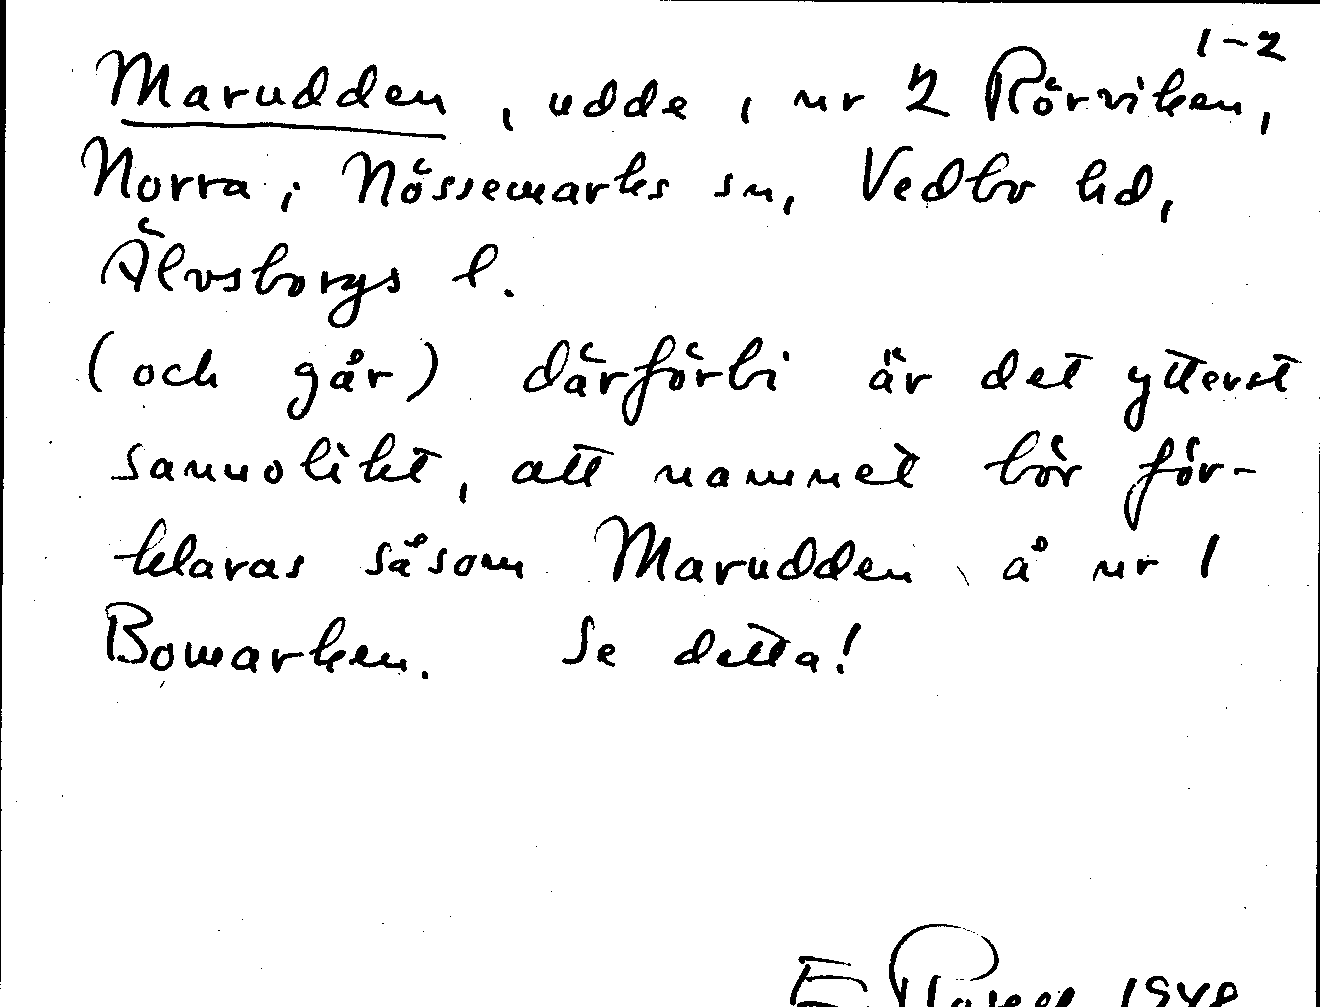 1-2
Marudden, udde, nr 2 Rörviken,
Norra; Nössemarks sn, Vedbo hd,
Älvsborgs l.
(och går) därförbi är det ytterst
sannolikt, att namnet bör för-
klaras såsom Marudden å nr 1
Bomarken. Se detta!
E